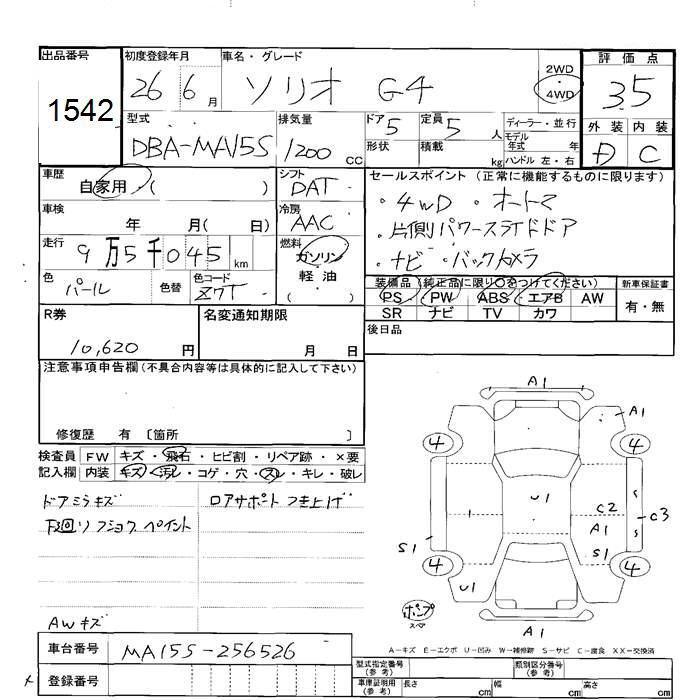 出品番号 初度登録年月 車名・グレード 評価点
1542 26 6月 ソリオ G4 2WD 4WD 3.5
型式 排気量 ドア 定員 ディーラー・並行 外装 内装
DBA-MA15S 1200 CC 5 5 人 モデル年式 年 D C
形状 積載 kg ハンドル 左・右
車歴 シフト セールスポイント (正常に機能するものに限ります)
自家用 ( ) DAT
・4WD ・オートマ
車検 年 月( 日) 冷房 AAC
・片側パワースライドドア
走行 9万5千045km 燃料 ガソリン
・ナビ ・バックカメラ
軽油
( )
色 パール 色替 色コード Z7T
装備品 (純正品に限り○をつけてください) 新車保証書
PS PW ABS エアB AW 有・無
SR ナビ TV カワ
R券 名変通知期限 後日品
10,620 円 月 日
注意事項申告欄 (不具合内容等は具体的に記入して下さい)
修復歴 有 〔箇所 〕
検査員 FW キズ・飛石・ヒビ割・リペア跡・×要
記入欄 内装 キズ・汚レ・コゲ・穴・スレ・キレ・破レ
ドアミラキズ ロアサポート つき上げ
AWキズ
A1
A1
4 4
U1
C2
A1
C3
S1 S1
4 4
U1
ポンプ
スペア
A1
A-キズ E-エクボ U-凹み W-補修跡 S-サビ C-腐食 XX-交換済
車台番号 MA15S-256526
登録番号
型式指定番号(参考) 類別区分番号(参考)
車庫証明用(参考) 長さ cm 幅 cm 高さ cm